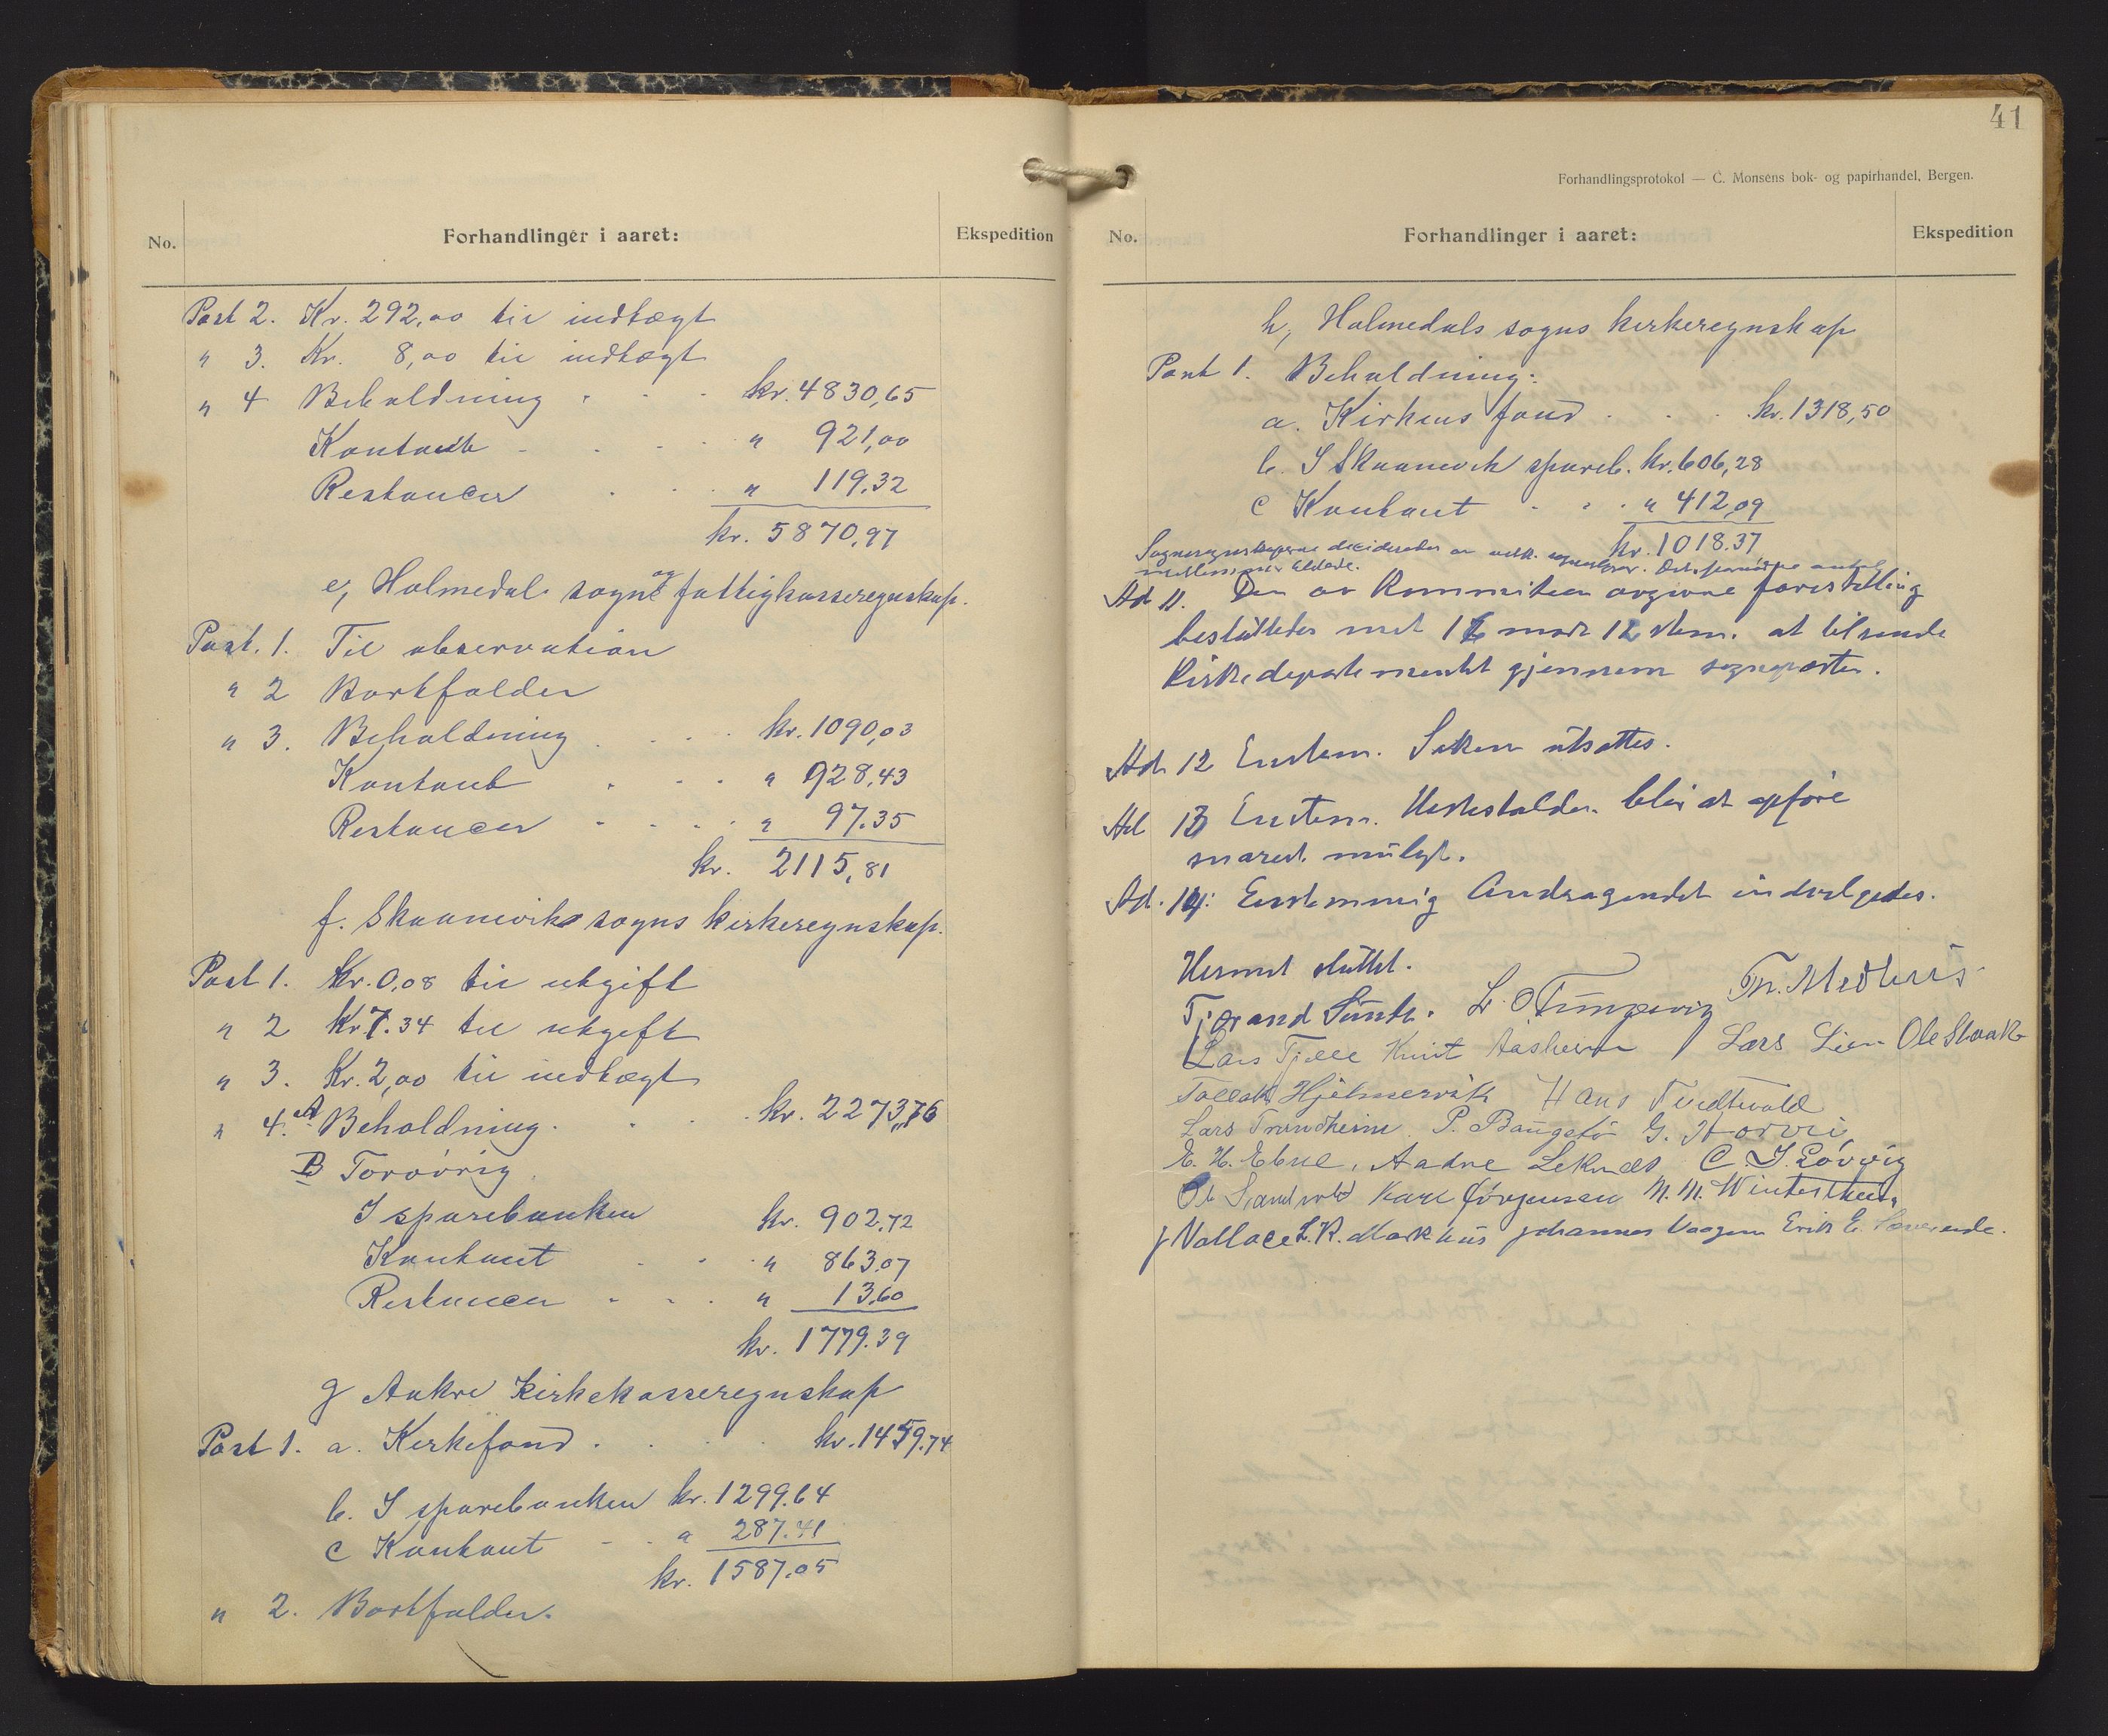 No.
Forhandlinger i aaret:
Ekspedition
Post 2. Kr. 292,00 til indtægt
" 3. Kr. 8,00 til indtægt
" 4 Beholdning . . . kr. 4830,65
Kontant . . . " 921,00
Restancer . . . " 119.32
kr. 5870,97
e, Holmedal sogns og fattigkasseregnskap.
Post. 1. Til observation
" 2 Bortfalder
" 3. Beholdning . . . . kr. 1090,03
Kontant . . . " 928,43
Restancer . . . . " 97.35
kr. 2115,81
f. Skaaneviks sogns kirkeregnskap.
Post 1. Kr. 0,08 til utgift
" 2 Kr. 7.34 til utgift
" 3. Kr. 2,00 til indtægt
" 4. A Beholdning . . . kr. 2273,76
B Forøvrig.
I sparebanken kr. 902,72
Kontant . . . " 863.07
Restancer . . . " 13.60
kr. 1779.39
g Aakre Kirkekasseregnskap
Post 1. a. Kirkefond . . . kr. 1459.74
b. I sparebanken kr. 1299.64
c Kontant . . " 287.41
kr. 1587.05
" 2. Bortfalder.
41
Forhandlingsprotokol — C. Monsens bok- og papirhandel, Bergen.
No.
Forhandlinger i aaret:
Ekspedition
h, Holmedals sogns kirkeregnskap
Post 1. Beholdning:
a. Kirkens fond . . . kr. 1318,50
b. I Skaanevik spareb. kr. 606,28
c Kontant . . . " 412,09
kr. 1018.37
Sogneregnskaperne decideredes av vedk.
medlemmer
Ad 11. Den av Kommiteen avgivne forestilling
besluttedes med 12 mot 12 stem. at tilsende
Kirkedepartementet gjennem sognepresten.
Ad. 12 Enstem. Saken utsattes.
Ad 13 Enstem. Hestestalden blir at opføre
snarest muligt.
Ad. 14: Enstemmig Andragendet indvilgedes.
Hermed sluttet.
Tjerand Sunde. L. O Tungesvig Th. Medhus
Lars Fjelle Knut Aasheim Lars Lien Ole Skaale
Tollak Hjelmervik Hans Tvedtvold
Lars Trondheim P. Baugstø G. Norvi
E. H. Ebne, Aadne Leknes C. J. Løvvig
Ob Sandvold Karl Jørgensen N. M. Winterthun
J Vallace L. K. Markhus Johannes Vaagen Erik E.